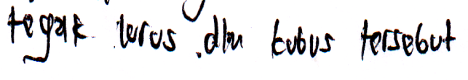 tegak lurus dlm kubus tersebut